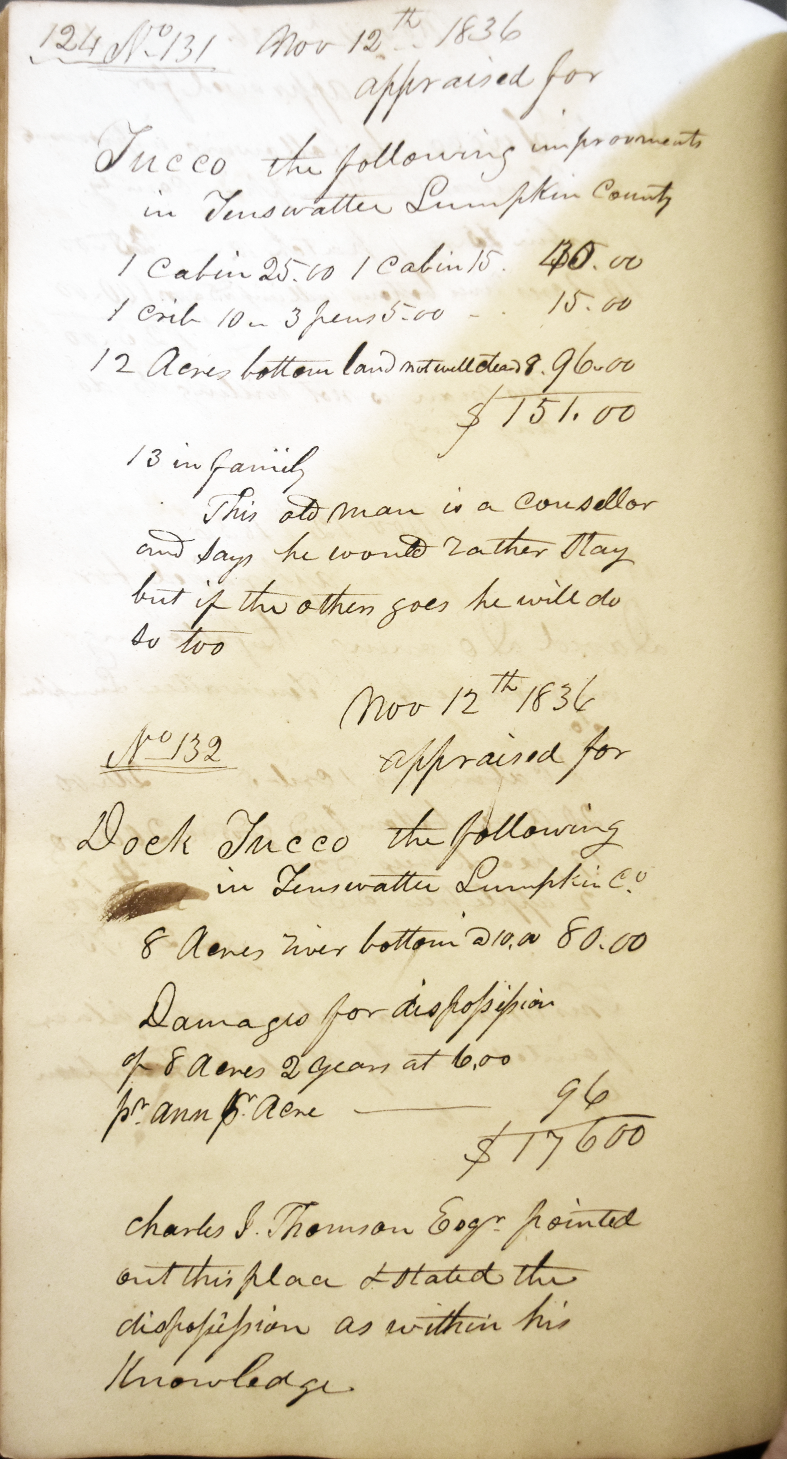 124 No 131 Nov 12th 1836
appraised for
Tucco the following improvments
in Tenswattee Lumpkin County
1 Cabin 25.00 1 Cabin 15. 40.00
1 crib 10 3 pens 5.00 - . 15.00
12 Acres bottom land not well cleard 8. 96.00
$ 151.00
13 in family
This old man is a consellor
and says he would rather stay
but if the others goes he will do
so too
Nov 12th 1836
No 132
appraised for
Dock Tucco the following
in Tenswattee Lumpkin Co
8 Acres river bottom a 10.00 80.00
Damages for dispossession
of 8 Acres 2 years at 6,00
pr. ann pr. Acre — 96
$ 17600
Charles J. Thomson Esqr pointed
out this place & stated the
dispossession as within his
Knowledge